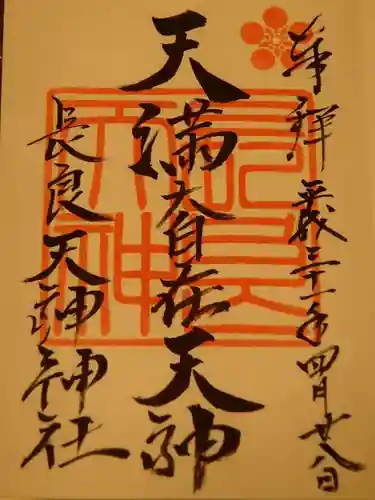 奉拝 平成三十一年四月廿八日
天満大自在天神
長良天神神社